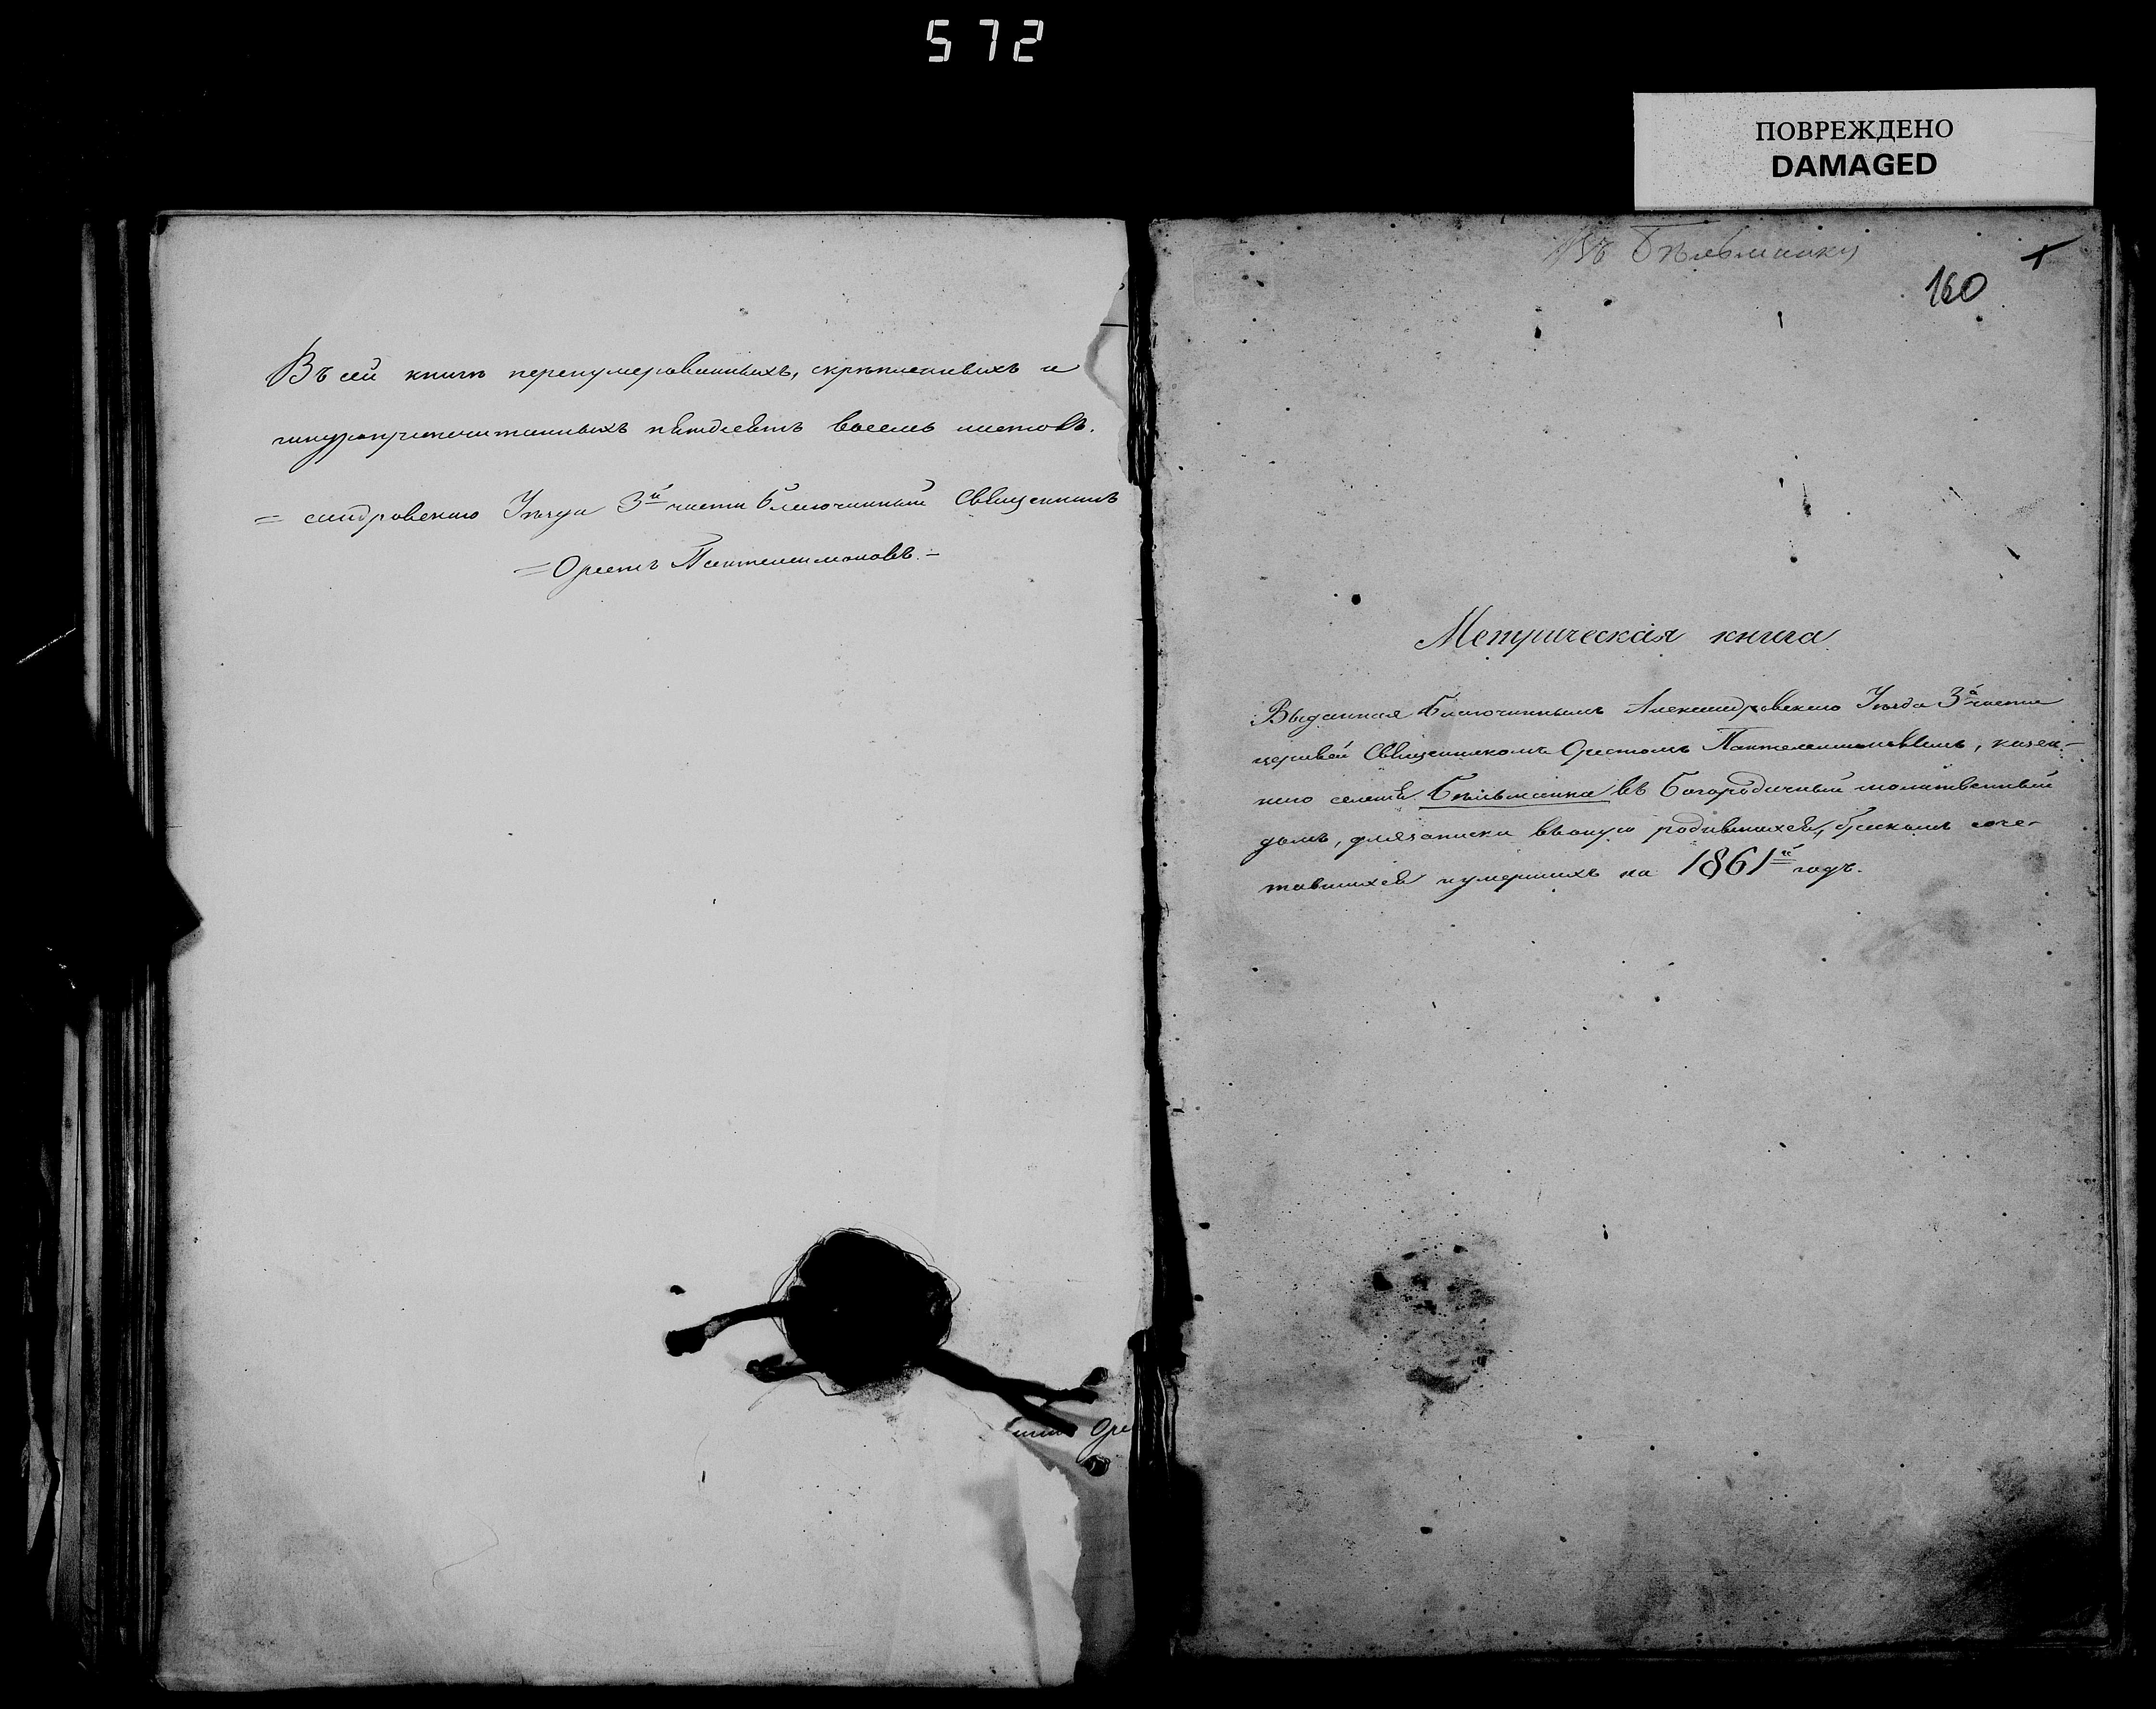 572
ПОВРЕЖДЕНО
DAMAGED
Въ сей книгѣ перенумерованныхъ, скрѣпленныхъ и
шнуроприпечатанныхъ пятдесятъ восемь листовъ.
= сандровскаго Уѣзда 3й части благочинный Священникъ
= Орестъ Пантелеимоновъ. –
Оре
Въ Бѣльманку
160
Метрическая книга
Выданная благочиннымъ Александровскаго Уѣзда 3й части
церквей Священникомъ Орестомъ Пантелеимоновымъ, казен-
наго селенія Бѣльманка въ Богородичный молитвенный
домъ, для записки въ оную родившихся, бракомъ соче-
тавшихся и умершихъ на 1861й годъ.